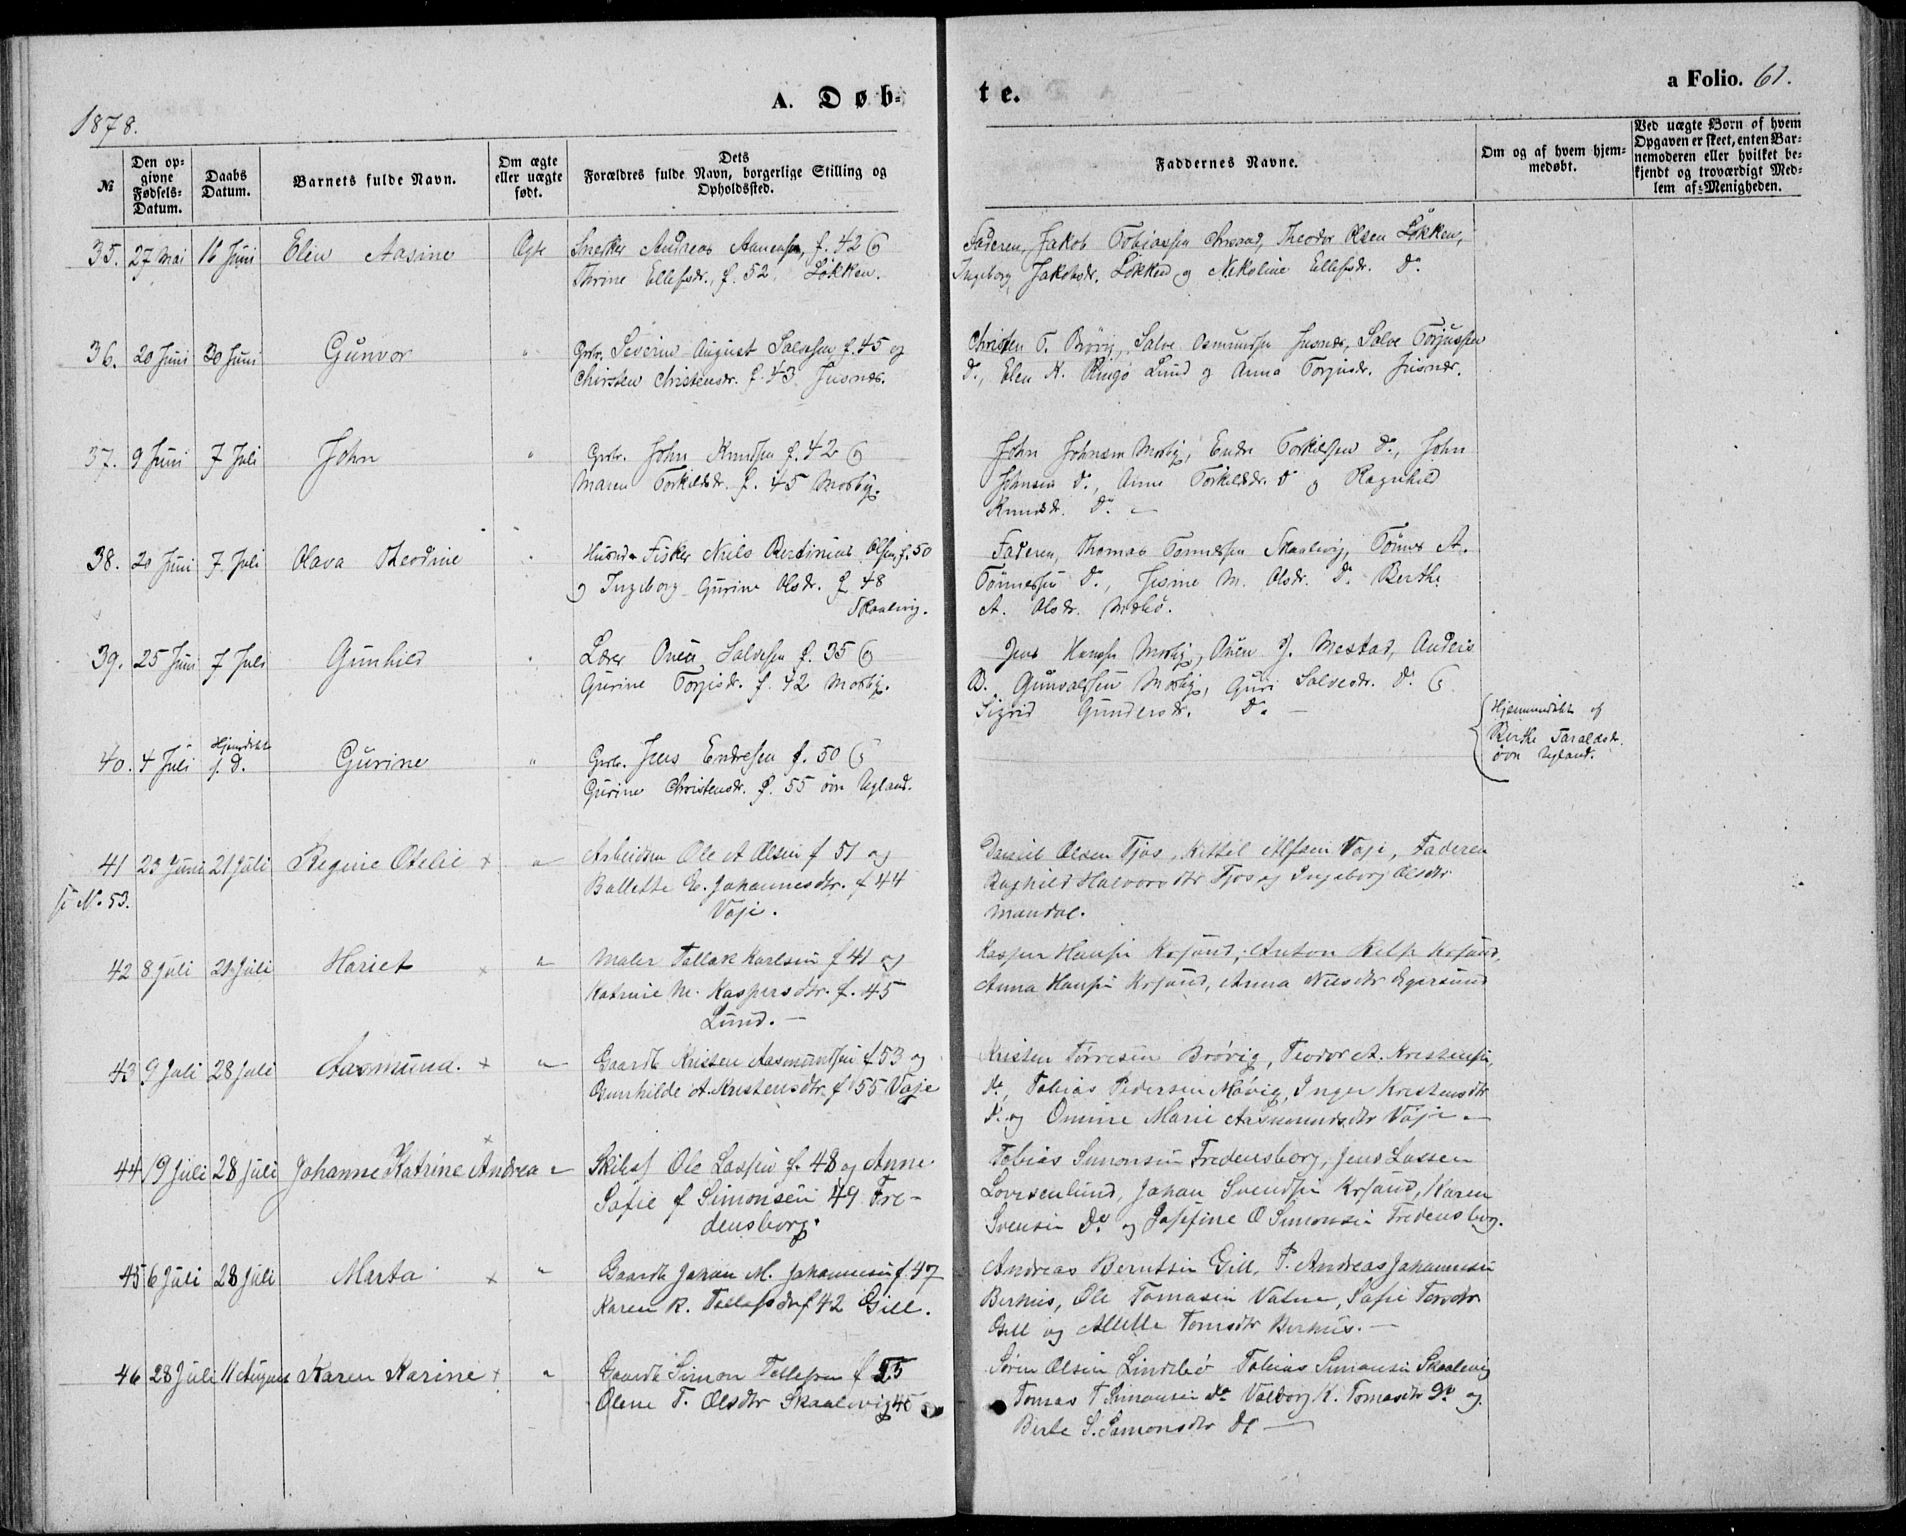 1878.
A. Døb-
te.
a Folio. 61.
№
Den op-
givne
Fødsels-
Datum.
Daabs
Datum.
Barnets fulde Navn.
Om ægte
eller uægte
født.
Dets
Forældres fulde Navn, borgerlige Stilling og
Opholdssted.
Faddernes Navne.
Om og af hvem hjem-
medøbt.
Ved uægte Børn af hvem
Opgaven er skeet, enten Bar-
nemoderen eller hvilket be-
kjendt og troværdigt Med-
lem af Menigheden.
35. 27 Mai 16 Juni Elen Aasine Ægte Snekker Andreas Aanensen, f. 42 &
Thrine Ellefsdr., f. 52. Løkken.
Faderen, Jakob Tobiassen, Theodor Olsen Løkken,
Ingeborg Jakobsdr. Løkken, og Nikoline Ellefsdr. Do.
36. 20 Juni 30 Juni Gunvor " Grbr. Severin August Salvesen f. 45 og
Chirsten Christensdr. f. 43. Jusnes.
Christen T. Brövig, Salve Osmundsen Jusnes, Salve Torjussen
Do., Elen K. Ringo Lund og Anna Torjusdr. Jusnes.
37. 9 Juni 7 Juli John " Grbr. John Knudsen f. 42 &
Maren Torkildsdr. f. 45 Mosby.
John Johnsen Mosby, Endre Torkilsen Do., John
Johnsen Do., Anne Torkildsdr. Do og Ragnhild
Knudsdr. Do. —
38. 20 Juni 7 Juli Olava Theodine " Husmd. Fisker Niels Bertinius Olsen, f. 50
og Ingeborg Gurine Olsdr. f. 48
Skaalevig.
Faderen, Thomas Tønnessen Skaalevig, Tønnes A.
Tønnessen Do., Jesine M. Olsdr. Do. Berthe
A. Olsdr. Mæbø.
39. 25 Juni 7 Juli Gunhild " Lærer Ouen Salvesen f. 35 &
Gurine Torjusdr. f. 42 Mosby.
Jens Hansen Mosby, Ouen J. Mestad, Anders
B. Gunvaldsen Mosby, Guri Salvesdr. Do. &
Sigrid Gundersdr. Do. —
40. 4 Juli Hjemdøbt
s. D. Gurine " Grbr. Jens Endresen f. 50 &
Gurine Christensdr. f. 55 övre Ugland.
Hjemmedøbt af
Berthe Taraldsdr.
övre Ugland.
41 23 Juni 21 Juli Regine Otelie × " Arbeidsm Ole A Olsen f 51 og
Ballette E. Johannesdtr. f 44
Voje.
se No. 53.
Daniel Olsen Tjos, Kittel Alfsen Voje, Faderen
Raghild Halvorsdtr Tjos og Ingeborg Olsdtr
Mandal.
42 8 Juli 21 Juli Hariet × " Maler Tallak Karlsen f 41 og
Katrine M. Kaspersdtr. f. 45
Lund. —
Kasper Hansen Krsand, Anton Krsand,
Anna Hansen Krsand, Anna Nilsdtr Egersund
43 9 Juli 28 Juli Aasmund. × " Gaardb Kristen Aasmundsen f 53 og
Gunhilde A. Kristensdtr f 55 Voje
Kristen Tørresen Brövig, Teodor A. Kristensen
do, Tobias Pedersen Møvig, Inger Kristensdtr
do. og Omine Marie Aasmundsdtr Voje —
44 19 Juli 28 Juli Johanne Katrine Andrea × " Skibsf Ole Lassen f. 48 og Anne
Sofie f Simonsen 49 Fre-
densborg.
Tobias Simonsen Fredensborg, Jens Lassen
Lovisenlund, Johan Svendsen Krsand, Karen
Svensen Do og Josefine O Simonsen Fredensborg.
45 6 Juli 28 Juli Marta × " Gaardb Johan M. Johannesen f. 47
Karen K. Tellefsdtr f 42 Gill.
Andreas Berntsen Gill, P. Andreas Johannesen
Berhus, Ole Tomasen Vatne, Sofie
Gill og Allette Tomsdtr Berhus. —
46 28 Juli 11 August Karen Karine × " Gaardb Simon Tellefsen f 55
Olene T. Olsdtr Skaalevig 45
Søren Olsen Lindebø Tobias Simonsen Skaalevig
Tomas T Simonsen do Valborg K. Tomasdtr Do og
Berte S. Simonsdtr Do —